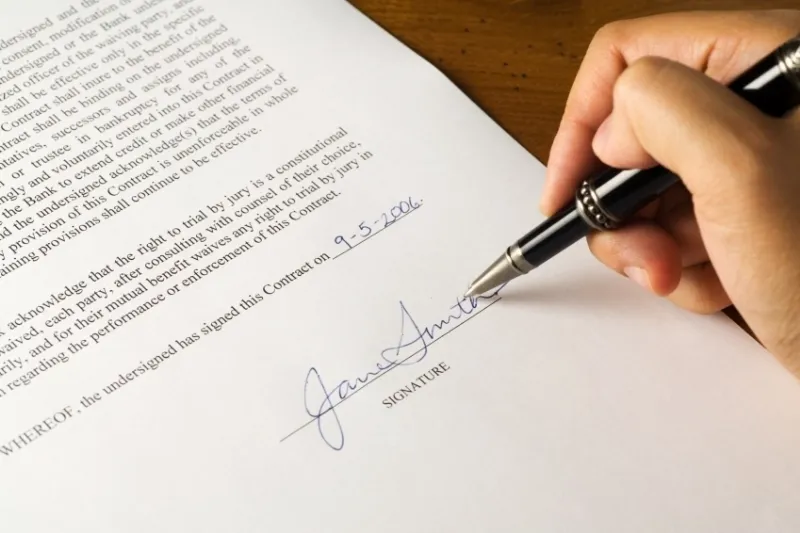 ndersigned and the
consent, modification (s
ndersigned or the Bank unles
zed officer of the waiving party, and
shall be effective only in the specific
Contract shall inure to the benefit of the
tract shall be binding on the undersigned
ntatives, successors and assigns including,
or trustee in bankruptcy for any of the
ngly and voluntarily entered into this Contract in
the Bank to extend credit or make other financial
d the undersigned acknowledge(s) that the terms of
y provision of this Contract is unenforceable in whole
aining provisions shall continue to be effective.
acknowledge that the right to trial by jury is a constitutional
waived, each party, after consulting with counsel of their choice,
rily, and for their mutual benefit waives any right to trial by jury in
n regarding the performance or enforcement of this Contract.
WHEREOF, the undersigned has signed this Contract on 9-5-2006.
Jane Smith
SIGNATURE